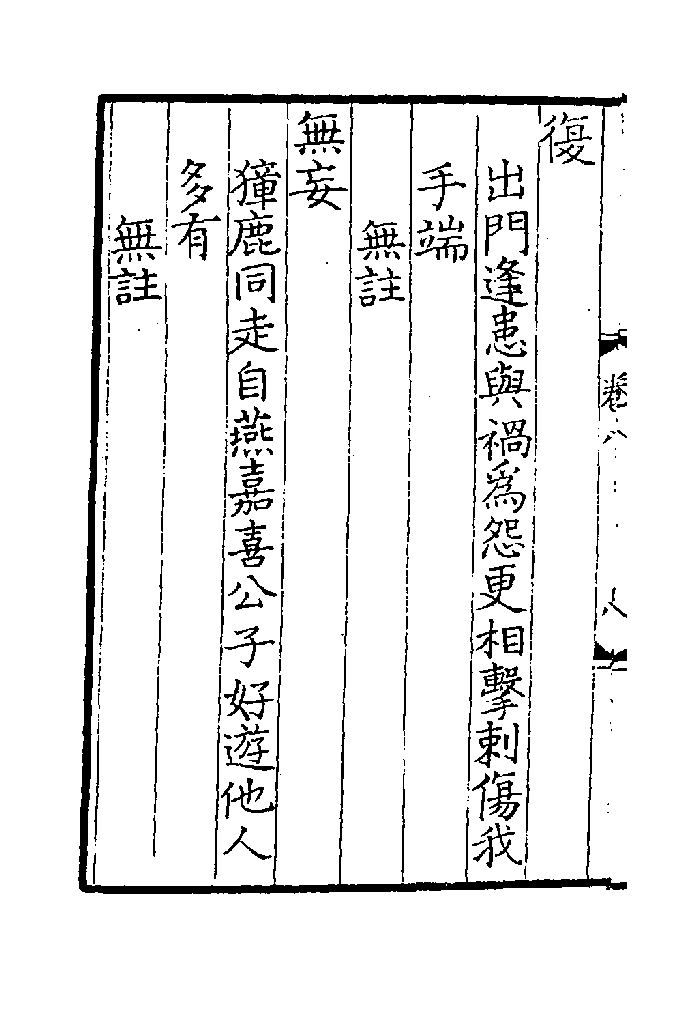 卷八
八
復
出門逢患與禍爲怨更相擊刺傷我
手端
無註
無妄
獐鹿同走自燕嘉喜公子好遊他人
多有
無註